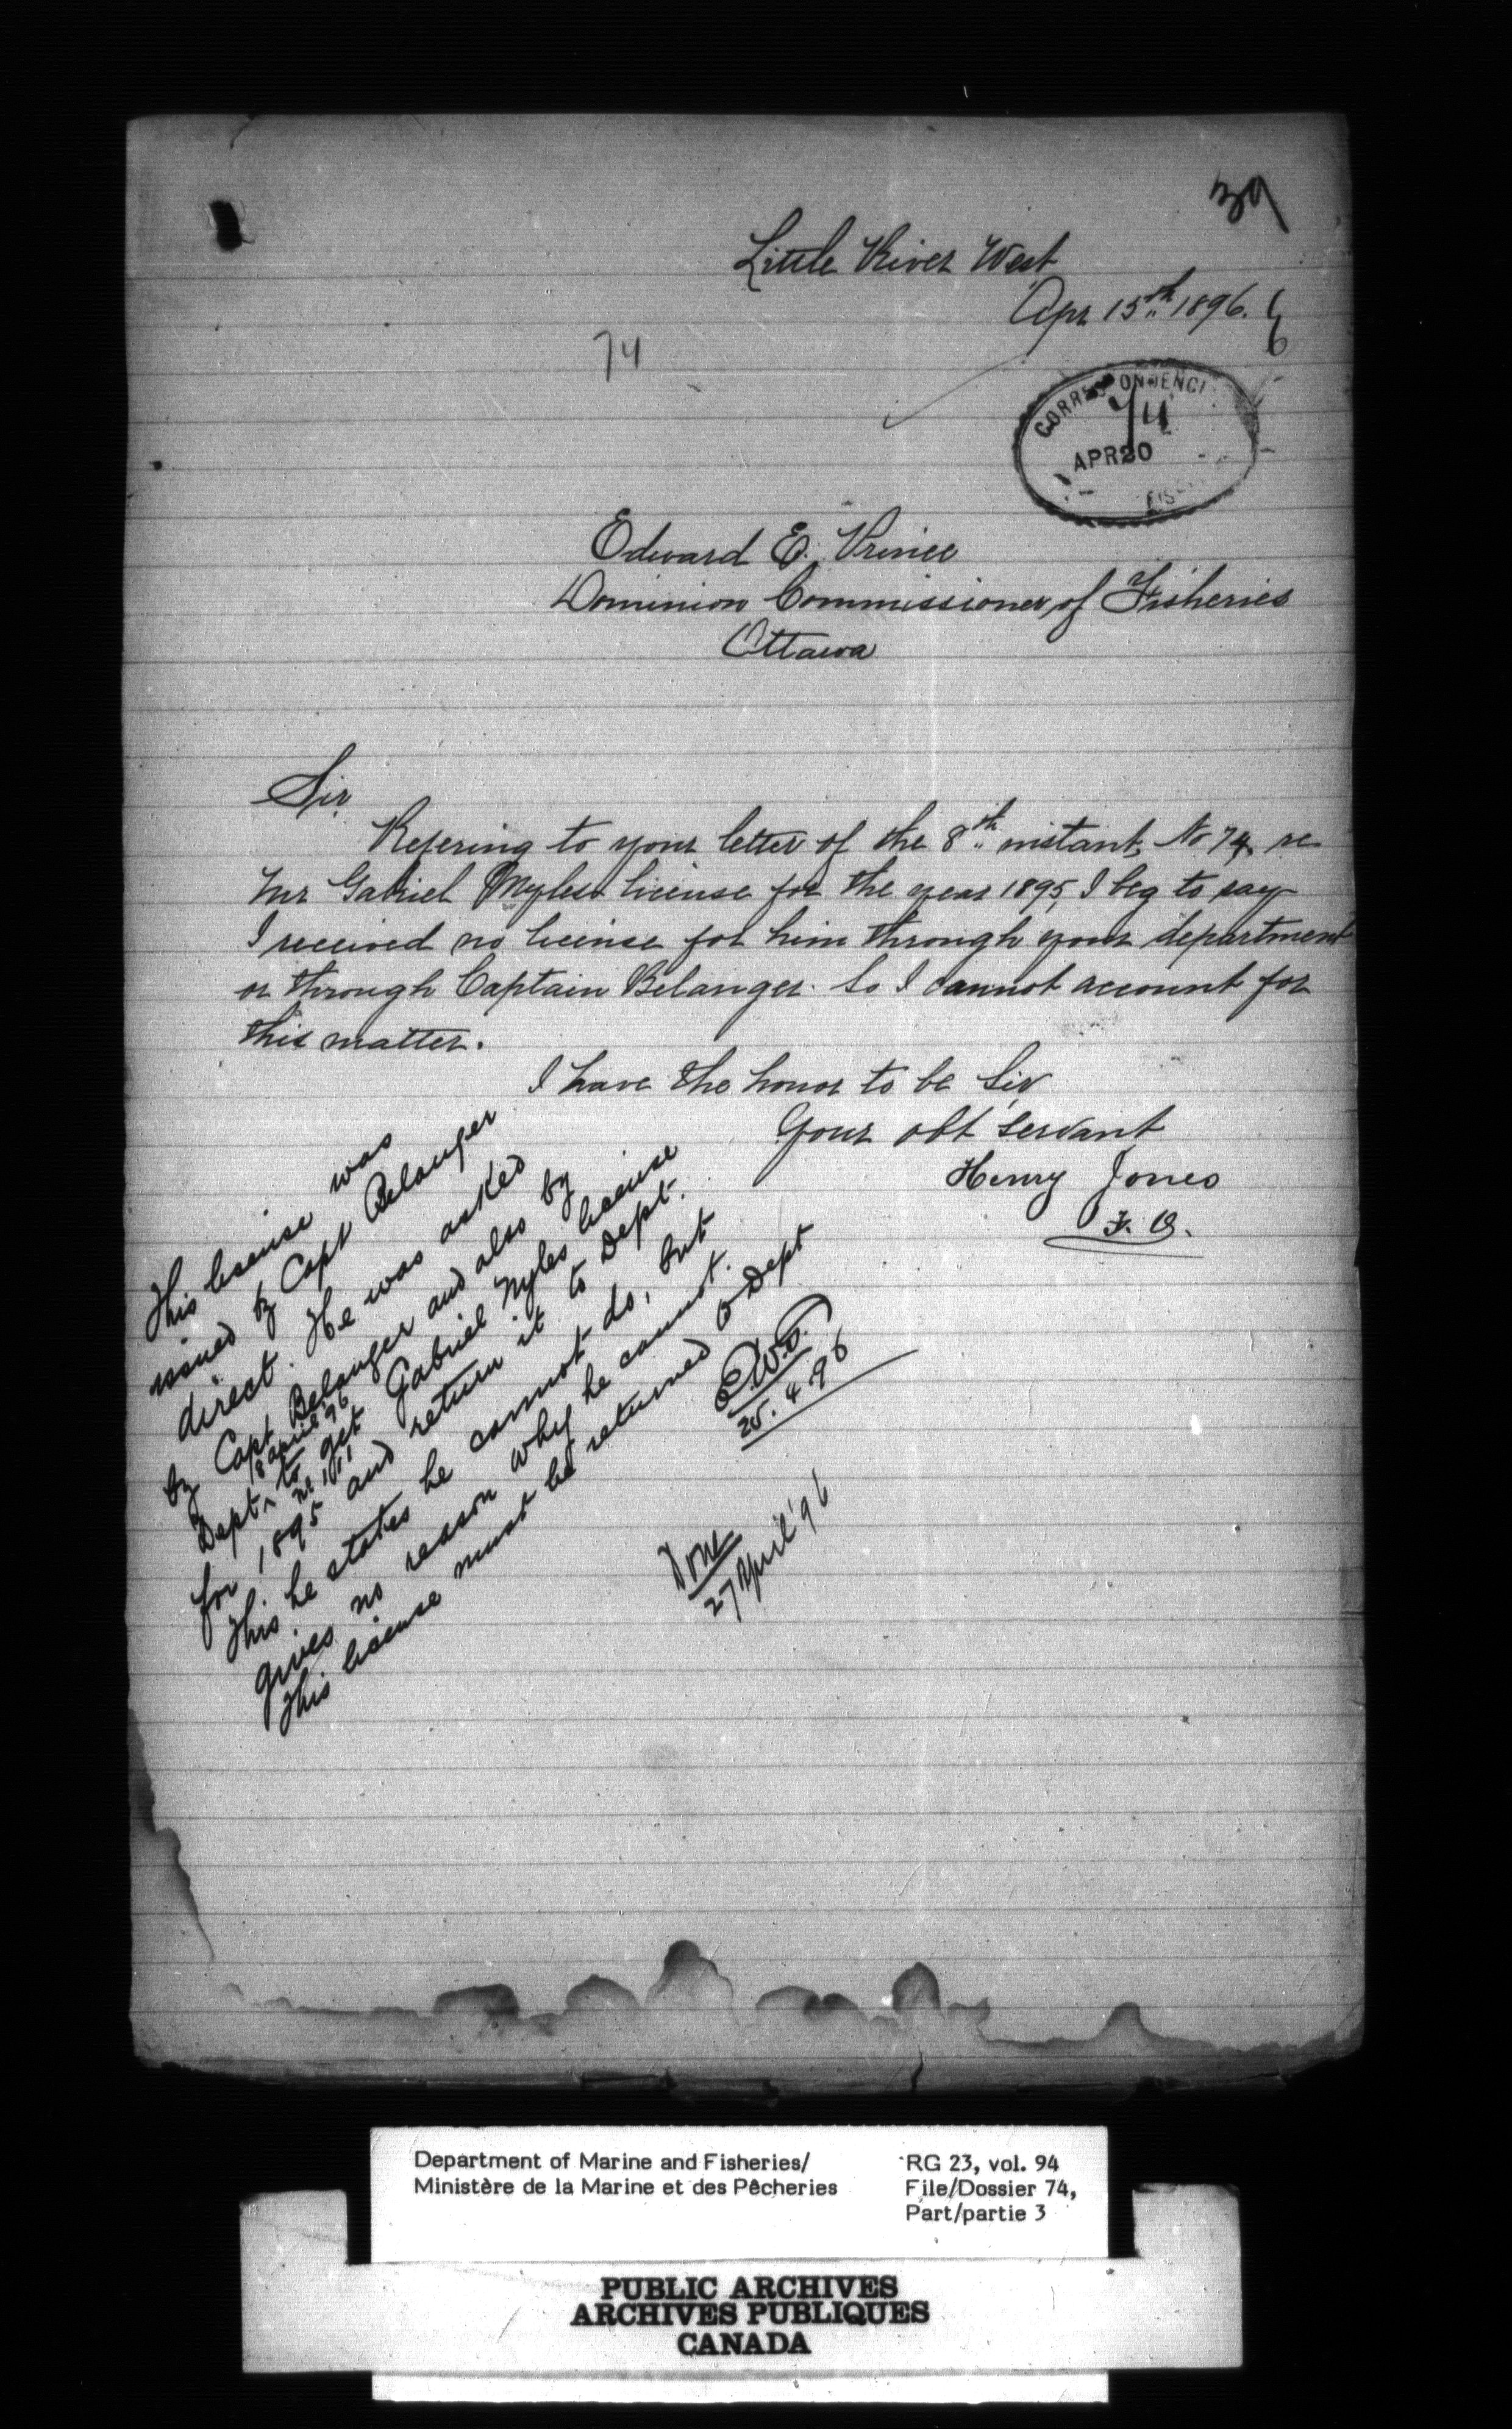 39
Little River West
Apr 15th 1896.
74
CORRESPONDENCE
74
APR 20
Edward E. Prince
Dominion Commissioner of Fisheries
Ottawa
Sir,
Refering to your letter of the 8th instant, No 74, re
Mr Gabriel Myles license for the year 1895, I beg to say
I received no license for him through your department
or through Captain Belanger. So I cannot account for
this matter.
I have the honor to be Sir
Your obt servant
Henry Jones
F. O.
This license was
issued by Capt Belanger
direct. He was asked
by Capt. Belanger and also by
8 April '96
Dept. ^ to get Gabriel Myles license
for 1895 and return it to Dept.
This he states he cannot do, but
gives no reason why he cannot.
This license must be returned to Dept
25. 4. 96
Done
27 April '96
Department of Marine and Fisheries/
Ministère de la Marine et des Pêcheries
RG 23, vol. 94
File/Dossier 74,
Part/partie 3
PUBLIC ARCHIVES
ARCHIVES PUBLIQUES
CANADA